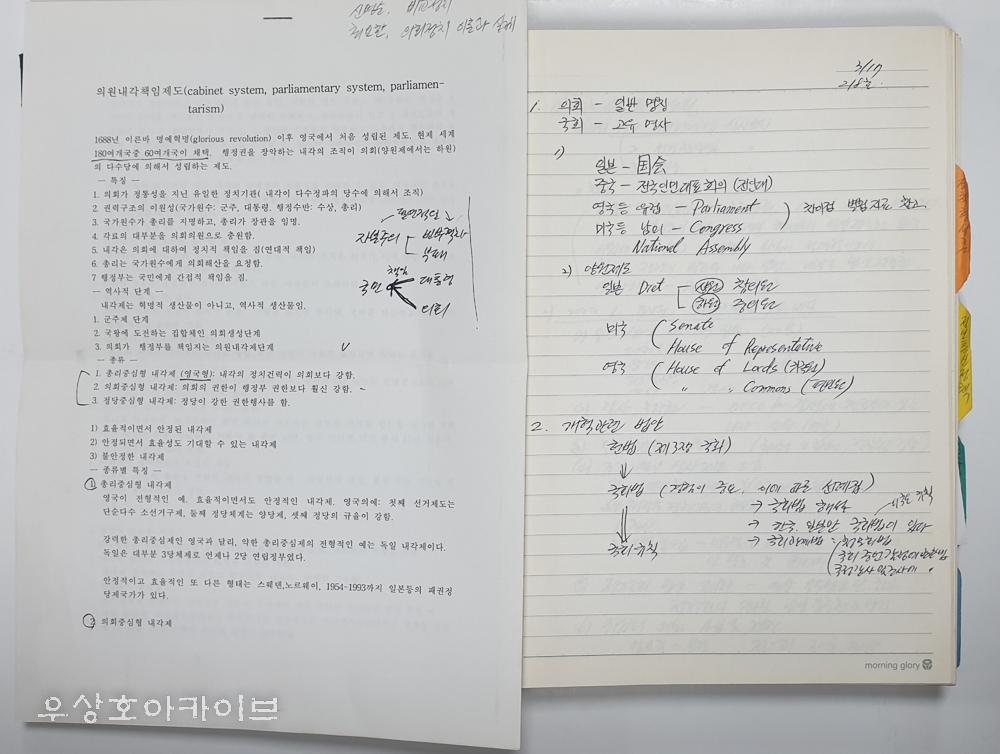 신명순, 비교정치
최요환, 의회정치 이론과 실제
의원내각책임제도(cabinet system, parliamentary system, parliamen-
tarism)
1688년 이른바 명예혁명(glorious revolution) 이후 영국에서 처음 성립된 제도, 현제 세계
180여개국중 60여개국이 채택. 행정권을 장악하는 내각의 조직이 의회(양원제에서는 하원)
의 다수당에 의해서 성립하는 제도.
— 특징 —
1. 의회가 정통성을 지닌 유일한 정치기관( 내각이 다수정파의 당수에 의해서 조직)
2. 권력구조의 이원성(국가원수: 군주, 대통령. 행정수반: 수상, 총리)
3. 국가원수가 총리를 지명하고, 총리가 장관을 임명.
4. 각료의 대부분을 의회의원으로 충원함.
5. 내각은 의회에 대하여 정치적 책임을 짐(연대적 책임)
6. 총리는 국가원수에게 의회해산을 요청함.
7 행정부는 국민에게 간접적 책임을 짐.
— 역사적 단계 —
내각제는 혁명적 생산물이 아니고, 역사적 생산물임.
1. 군주제 단계
2. 국왕에 도전하는 집합체인 의회생성단계
3. 의회가 행정부를 책임지는 의원내각제단계
— 종류 —
1. 총리중심형 내각제 (영국형): 내각의 정치건력이 의회보다 강함.
2. 의회중심형 내각제: 의회의 권한이 행정부 권한보다 훨신 강함.
3. 정당중심형 내각제: 정당이 강한 권한행사를 함.
1) 효율적이면서 안정된 내각제
2) 안정되면서 효율성도 기대할 수 있는 내각제
3) 불안정한 내각제
— 종류별 특징 —
1 총리중심형 내각제
영국이 전형적인 예. 효율적이면서도 안정적인 내각제. 영국의예: 첫째 선거제도는
단순다수 소선기구제, 둘째 정당체계는 양당제, 셋째 정당의 규율이 강함.
강력한 총리중심제인 영국과 달리, 약한 총리중심제의 전형적인 예는 독일 내각제이다.
독일은 대부분 3당체제로 언제나 2당 연립정부였다.
안정적이고 효율적인 또 다른 형태는 스웨덴,노르웨이, 1954-1993까지 일본등의 패권정
당제국가가 있다.
2 의회중심형 내각제
자본주의
부패
책임
국민 대통령
의회
3/17
218호
1. 의회 – 일반 명칭
국회 – 고유 명사
1)
일본 – 国会
중국 – 전국인민대표회의 (전인대)
영국등 유럽 – Parliament
미국등 남미 – Congress
National Assembly
차이점 별첨자료 참고
2) 양원제도
일본 Diet 상원 참의원
하원 중의원
미국 Senate
House of Representetive
영국 House of Lords (귀족원)
〃 〃 Commons (평민원)
2. 개혁관련 법안
헌법 (제3장 국회)
국회법 (경험이 중요, 이에 따른 선례집)
→ 국회법 해설
→ 한국, 일본만 국회법이 있다
→ 국회관계법
국회규칙
morning glory
우상호아카이브